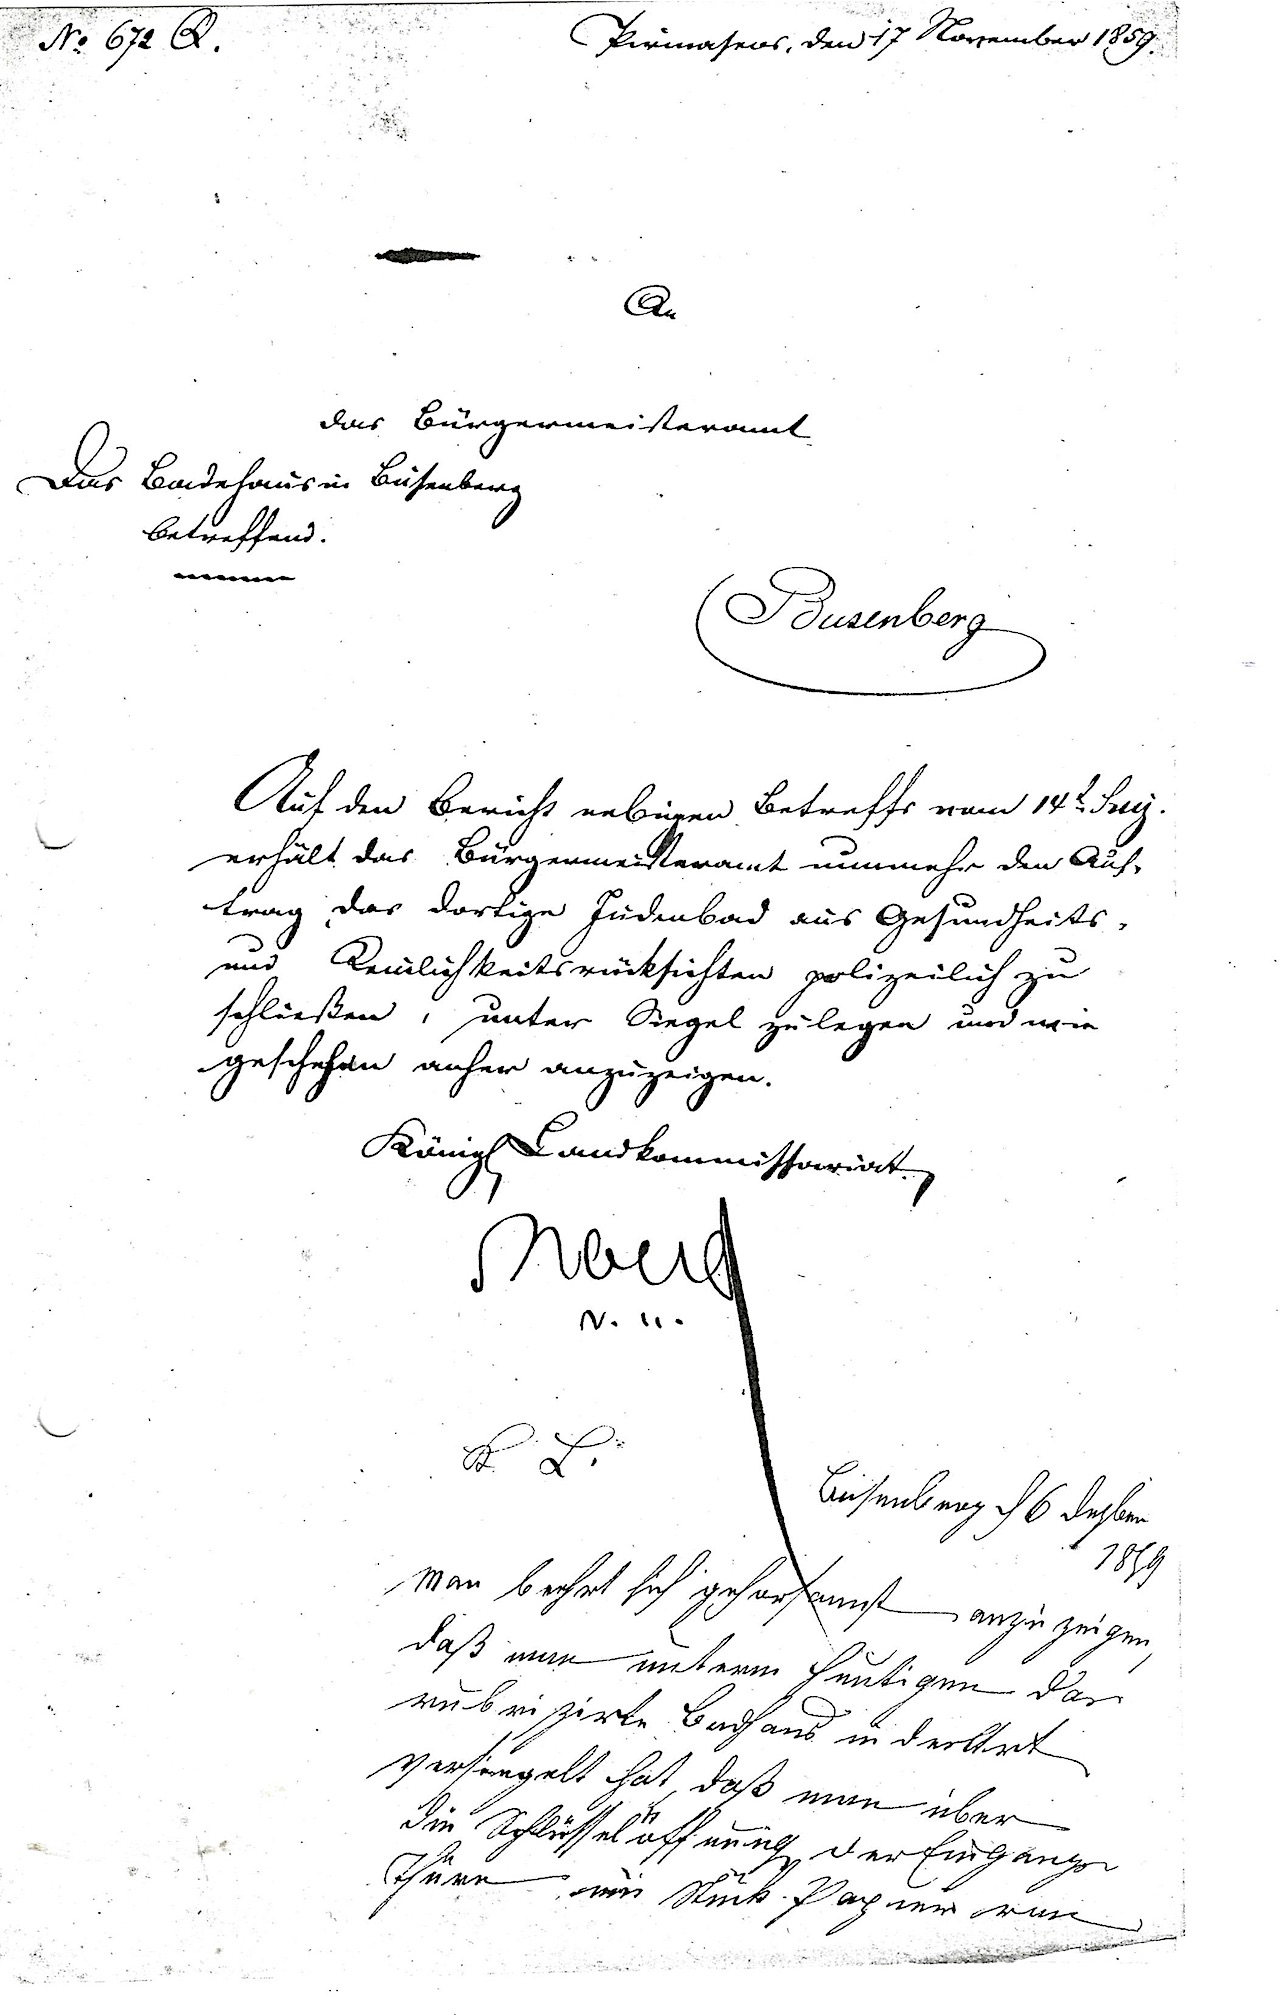 No 672 Q.
Pirmasens, den 17 November 1859.
An
das Bürgermeisteramt
Das Badehaus in Busenberg
betreffend.
Busenberg
Auf den Bericht nebigen Betreffs vom 14t
erhält das Bürgermeisteramt nunmehr den Auf-
trag das dortige Judenbad aus Gesundheits-
und Reinlichkeitsrücksichten polizeilich zu
schließen, unter Siegel zu legen und wie
geschehen anher anzuzeigen.
Königl Landkommissariat.
K. L.
Busenberg d 6 Dezber
1859
Man beehrt sich gehorsamst anzuzeigen,
daß man unterm Heutigen das
rubrizirte Badhaus in der Art
versiegelt hat, daß man über
die Schlüsselöffnung der Eingangs
Thüre ein Stück Papier von